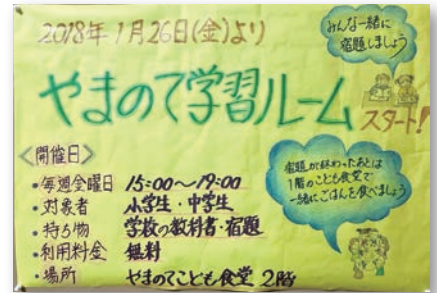 2018年1月26日(金)より
みんな一緒に
宿題しましょう
やまのて学習ルーム
スタート!
〈開催日〉
・毎週金曜日 15:00〜19:00
・対象者 小学生・中学生
・持ち物 学校の教科書・宿題
・利用料金 無料
・場所 やまのてこども食堂 2階
宿題が終わったあとは
1階のこども食堂で
一緒にごはんを食べましょう